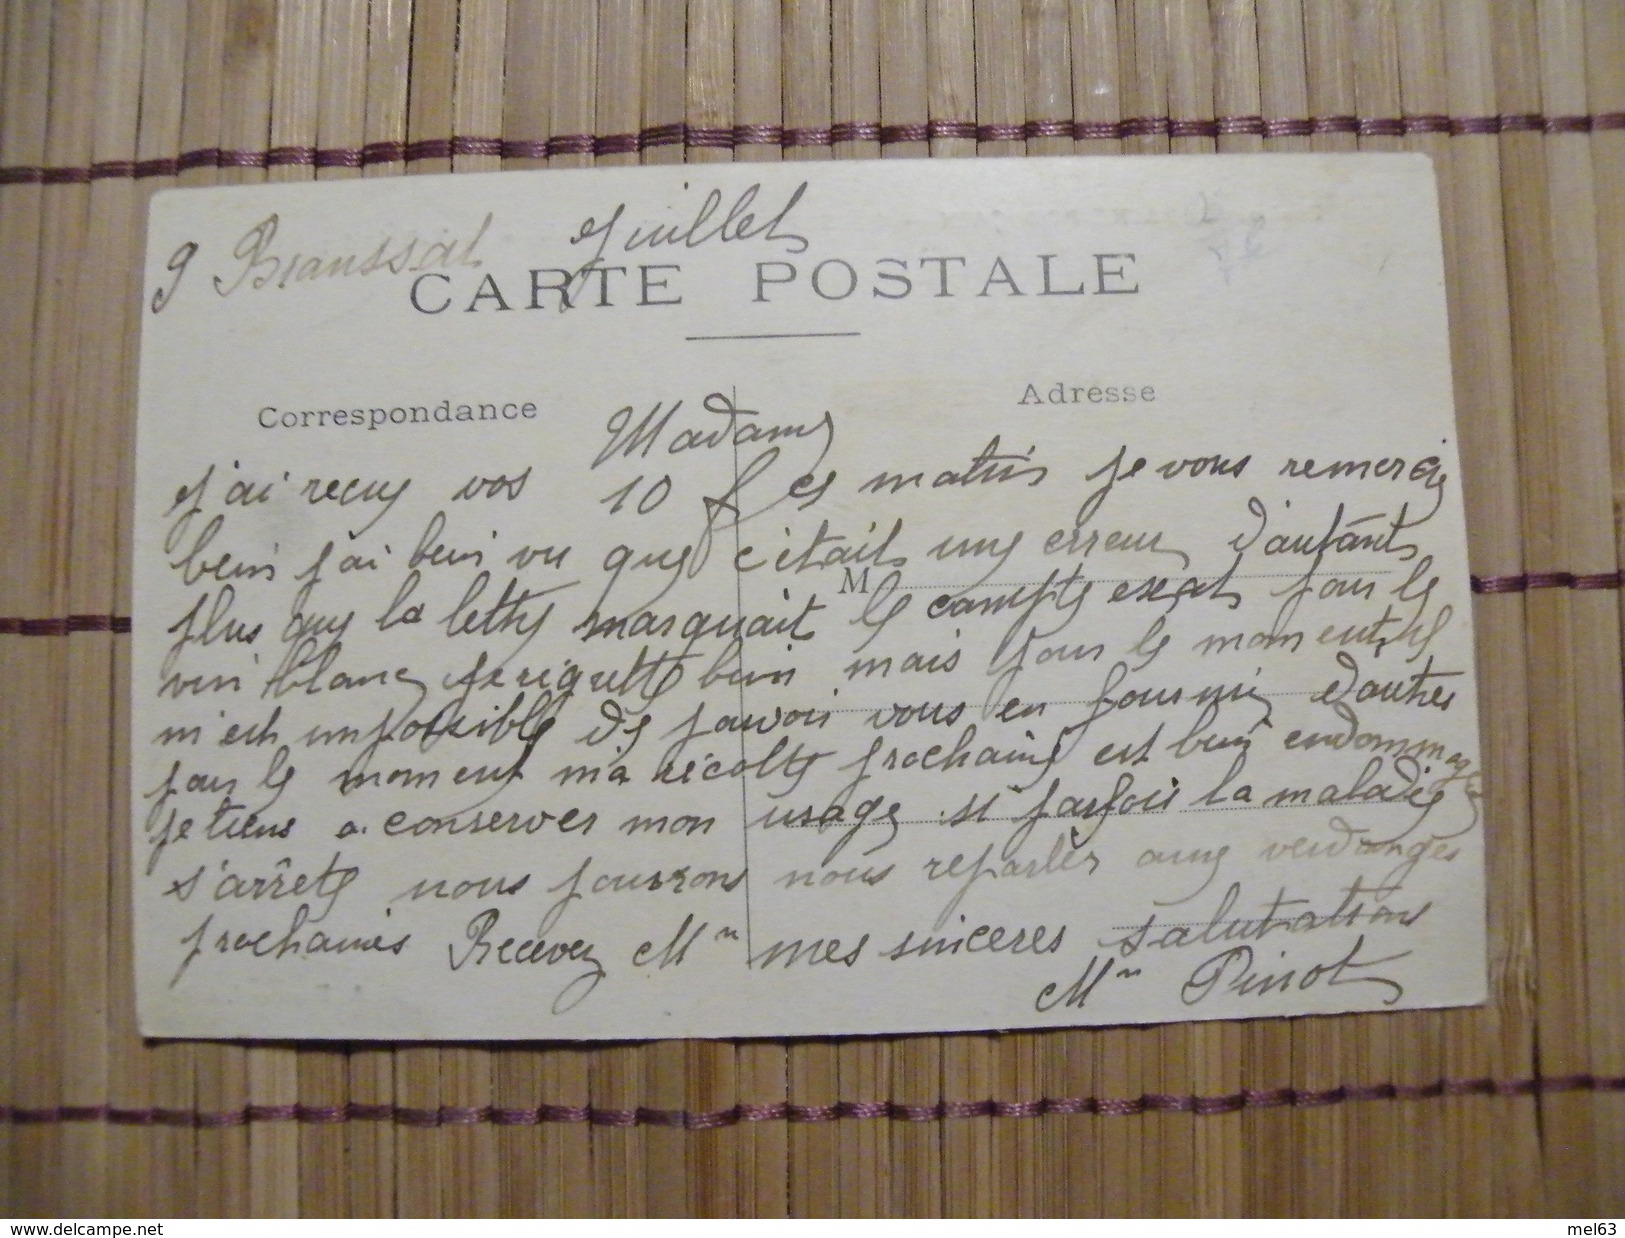 9 Braussat Juillet
CARTE POSTALE
Correspondance
Adresse
Madame
J'ai reçue vos 10 f ce matin je vous remercie
bein j'ai bein vu que c'était une erreur d'autants
M
plus que la lettre marquait le compte exact pour le
vin blanc je regrette bein mais pour le moment il
m'est impossible de pouvoir vous en fournir d'autres
par le moment ma récolte prochaine est bein endommagée
je tiens a conserver mon usage si parfois la maladie
s'arrête nous pourrons nous reparler aux vendanges
prochaines Recevez Mme mes sinceres salutations
Mme Pinot
delcampe.net
mel63